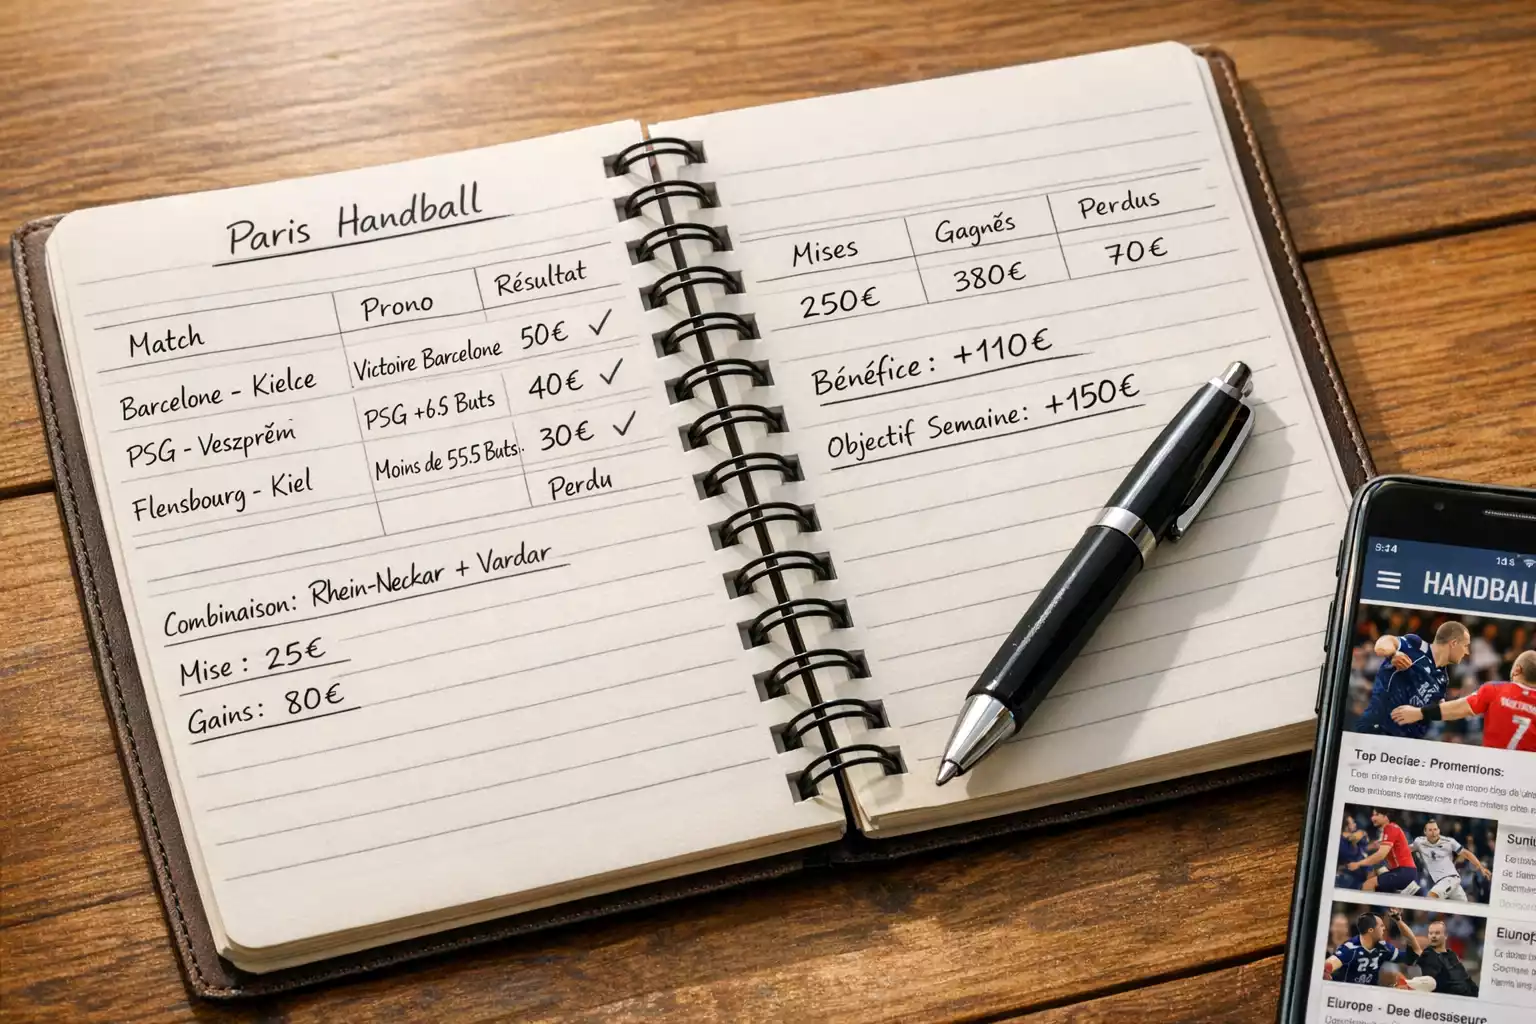 Paris Handball
Match Prono Résultat
Barcelone - Kielce Victoire Barcelone 50€ ✓
PSG - Veszprěm PSG +6.5 Buts 40€ ✓
Flensbourg - Kiel Moins de 55.5 Buts. 30€ ✓
Perdu
Combinaison: Rhein-Neckar + Vardar
Mise : 25€
Gains: 80€
Mises Gagnés Perdus
250€ 380€ 70€
Bénéfice : +110€
Objectif Semaine: +150€
HANDBALL
Top Declae: Promentions:
Europe - Dee